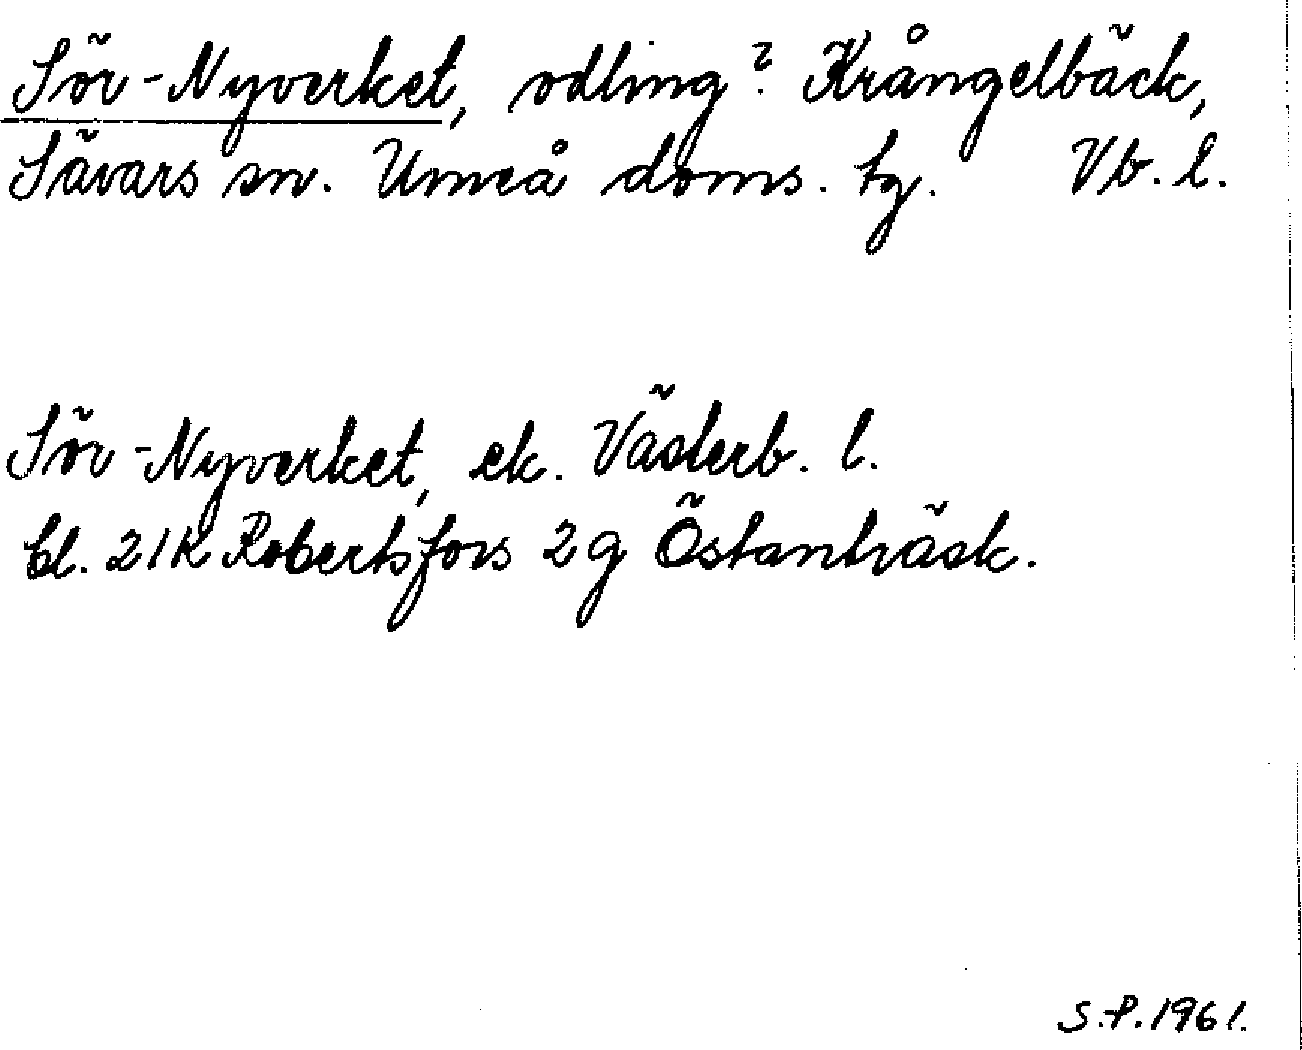 Sör-Nyverket, odling? Krångelbäck,
Sävars sn. Umeå doms. tg. Vb. l.
Sör-Nyverket, ek. Västerb. l.
bl. 21K Robertsfors 2g Östanträsk.
S.P. 1961.